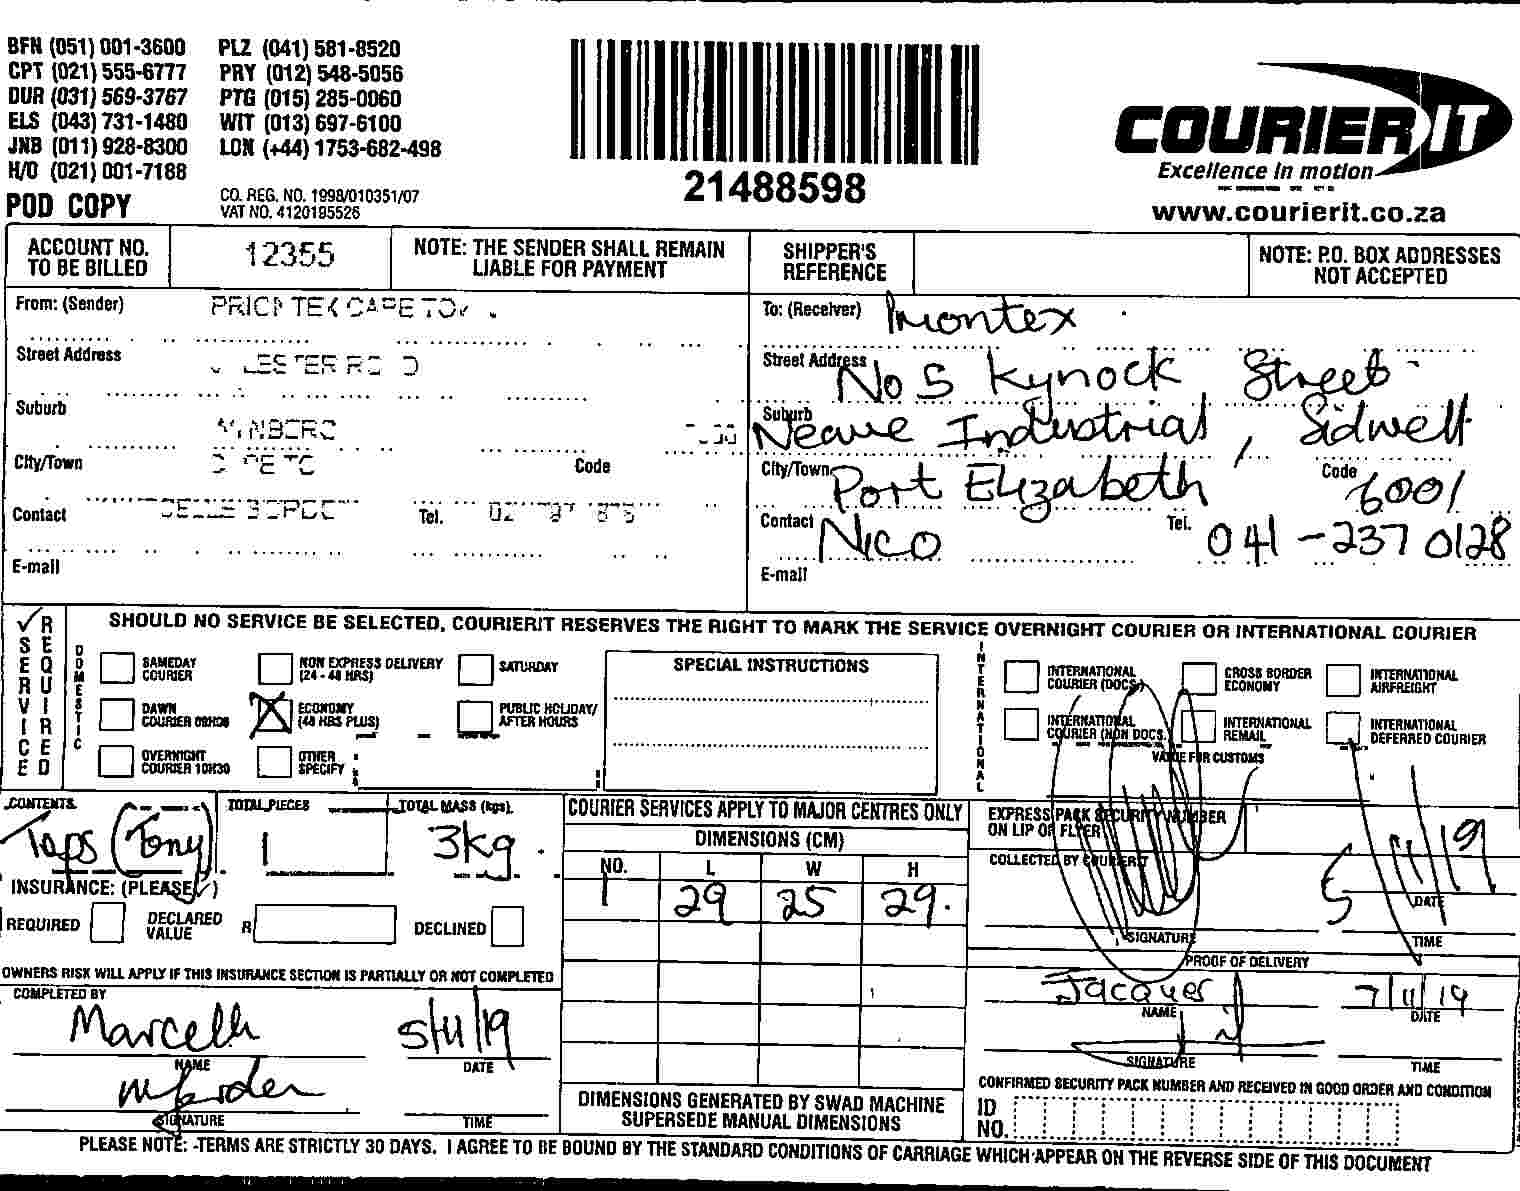 BFN (051) 001-3600 PLZ (041) 581-8520
CPT (021) 555-6777 PRY (012) 548-5056
DUR (031) 569-3767 PTG (015) 285-0060
ELS (043) 731-1480 WIT (013) 697-6100
JNB (011) 928-8300 LON (+44) 1753-682-498
H/O (021) 001-7188
POD COPY
CO. REG. NO. 1998/010351/07
VAT NO. 4120195526
21488598
COURIER IT
Excellence in motion
www.courierit.co.za
ACCOUNT NO. TO BE BILLED
12355
NOTE: THE SENDER SHALL REMAIN LIABLE FOR PAYMENT
SHIPPER'S REFERENCE
NOTE: P.O. BOX ADDRESSES NOT ACCEPTED
From: (Sender)
Street Address
Suburb
City/Town Code
Contact Tel.
E-mail
To: (Receiver)
Street Address No 5 Kynock Street
Suburb Neave Industrial, Sidwell
City/Town Port Elizabeth Code 6001
Contact Nico Tel. 041-237 0128
E-mail
SERVICE REQUIRED
SHOULD NO SERVICE BE SELECTED, COURIERIT RESERVES THE RIGHT TO MARK THE SERVICE OVERNIGHT COURIER OR INTERNATIONAL COURIER
DOMESTIC
SAMEDAY COURIER
NON EXPRESS DELIVERY (24 - 48 HRS)
SATURDAY
DAWN COURIER 09H00
ECONOMY (48 HRS PLUS)
PUBLIC HOLIDAY/ AFTER HOURS
OVERNIGHT COURIER 10H30
OTHER SPECIFY
SPECIAL INSTRUCTIONS
INTERNATIONAL
INTERNATIONAL COURIER (DOCS)
CROSS BORDER ECONOMY
INTERNATIONAL AIRFREIGHT
INTERNATIONAL COURIER (NON DOCS)
INTERNATIONAL REMAIL
INTERNATIONAL DEFERRED COURIER
VALUE FOR CUSTOMS
CONTENTS
Taps (Tony)
TOTAL PIECES
1
TOTAL MASS (kgs)
3kg
INSURANCE: (PLEASE ✓)
REQUIRED
DECLARED VALUE R
DECLINED
OWNERS RISK WILL APPLY IF THIS INSURANCE SECTION IS PARTIALLY OR NOT COMPLETED
COMPLETED BY
5/11/19
NAME DATE
SIGNATURE TIME
COURIER SERVICES APPLY TO MAJOR CENTRES ONLY
DIMENSIONS (CM)
NO. L W H
1 29 25 29
DIMENSIONS GENERATED BY SWAD MACHINE
SUPERSEDE MANUAL DIMENSIONS
EXPRESS PACK SECURITY NUMBER
ON LIP OF FLYER
COLLECTED BY COURIERIT
5/11/19
DATE
SIGNATURE TIME
PROOF OF DELIVERY
Jacques 7/11/19
NAME DATE
SIGNATURE TIME
CONFIRMED SECURITY PACK NUMBER AND RECEIVED IN GOOD ORDER AND CONDITION
ID NO.
PLEASE NOTE: -TERMS ARE STRICTLY 30 DAYS. I AGREE TO BE BOUND BY THE STANDARD CONDITIONS OF CARRIAGE WHICH APPEAR ON THE REVERSE SIDE OF THIS DOCUMENT